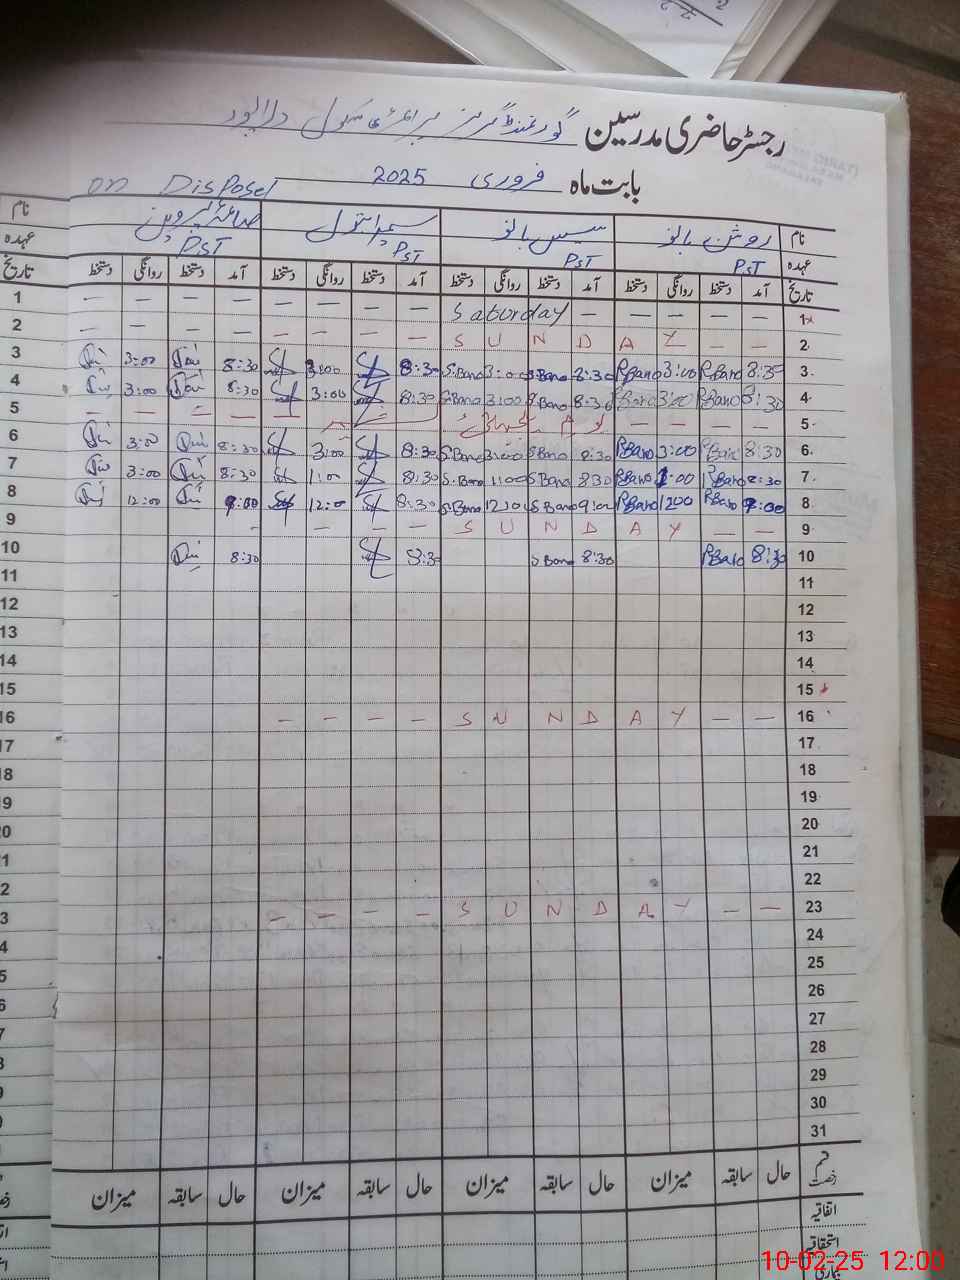 رجسٹر حاضری مدرسین گورنمنٹ گرلز پرائمری سکول دلالپور
بابت ماہ فروری 2025
on Disposel
نام روشن بانو سمیرا بتول نام
عہدہ PST PST PST PST عہدہ
تاریخ آمد دستخط روانگی دستخط آمد دستخط روانگی دستخط آمد دستخط روانگی دستخط آمد دستخط روانگی دستخط تاریخ
1 — — — — — — — — Saturday — — — — — 1
2 — — — — — S U N D A Y — — 2
3 3:00 8:30 3:00 8:30 S.Bano 3:00 S.Bano 8:30 RBano 3:00 RBano 8:30 3
4 3:00 8:30 3:00 8:30 S.Bano 3:00 S.Bano 8:30 RBano 3:00 RBano 8:30 4
5 — — — — — یوم یکجہتی کشمیر — — — — 5
6 3:00 8:30 3:00 8:30 S.Bano 3:00 S.Bano 8:30 RBano 3:00 RBano 8:30 6
7 3:00 8:30 1:00 8:30 S.Bano 1:00 S.Bano 8:30 RBano 1:00 RBano 8:30 7
8 12:00 9:00 12:00 8:30 S.Bano 12:0 S Bano 9:00 RBano 1200 RBano 9:00 8
9 — — — — — S U N D A Y — — 9
10 8:30 8:30 S Bano 8:30 RBano 8:30 10
11 11
12 12
13 13
14 14
15 15
16 — — — — S U N D A Y — — 16
17 17
18 18
19 19
20 20
21 21
22 22
23 — — — — S U N D A Y — — 23
24 24
25 25
26 26
27 27
28 28
29 29
30 30
31 31
قسم رخصت حال سابقہ میزان حال سابقہ میزان حال سابقہ میزان حال سابقہ میزان
اتفاقیہ
استحقاقی
بیماری
10-02-25 12:00